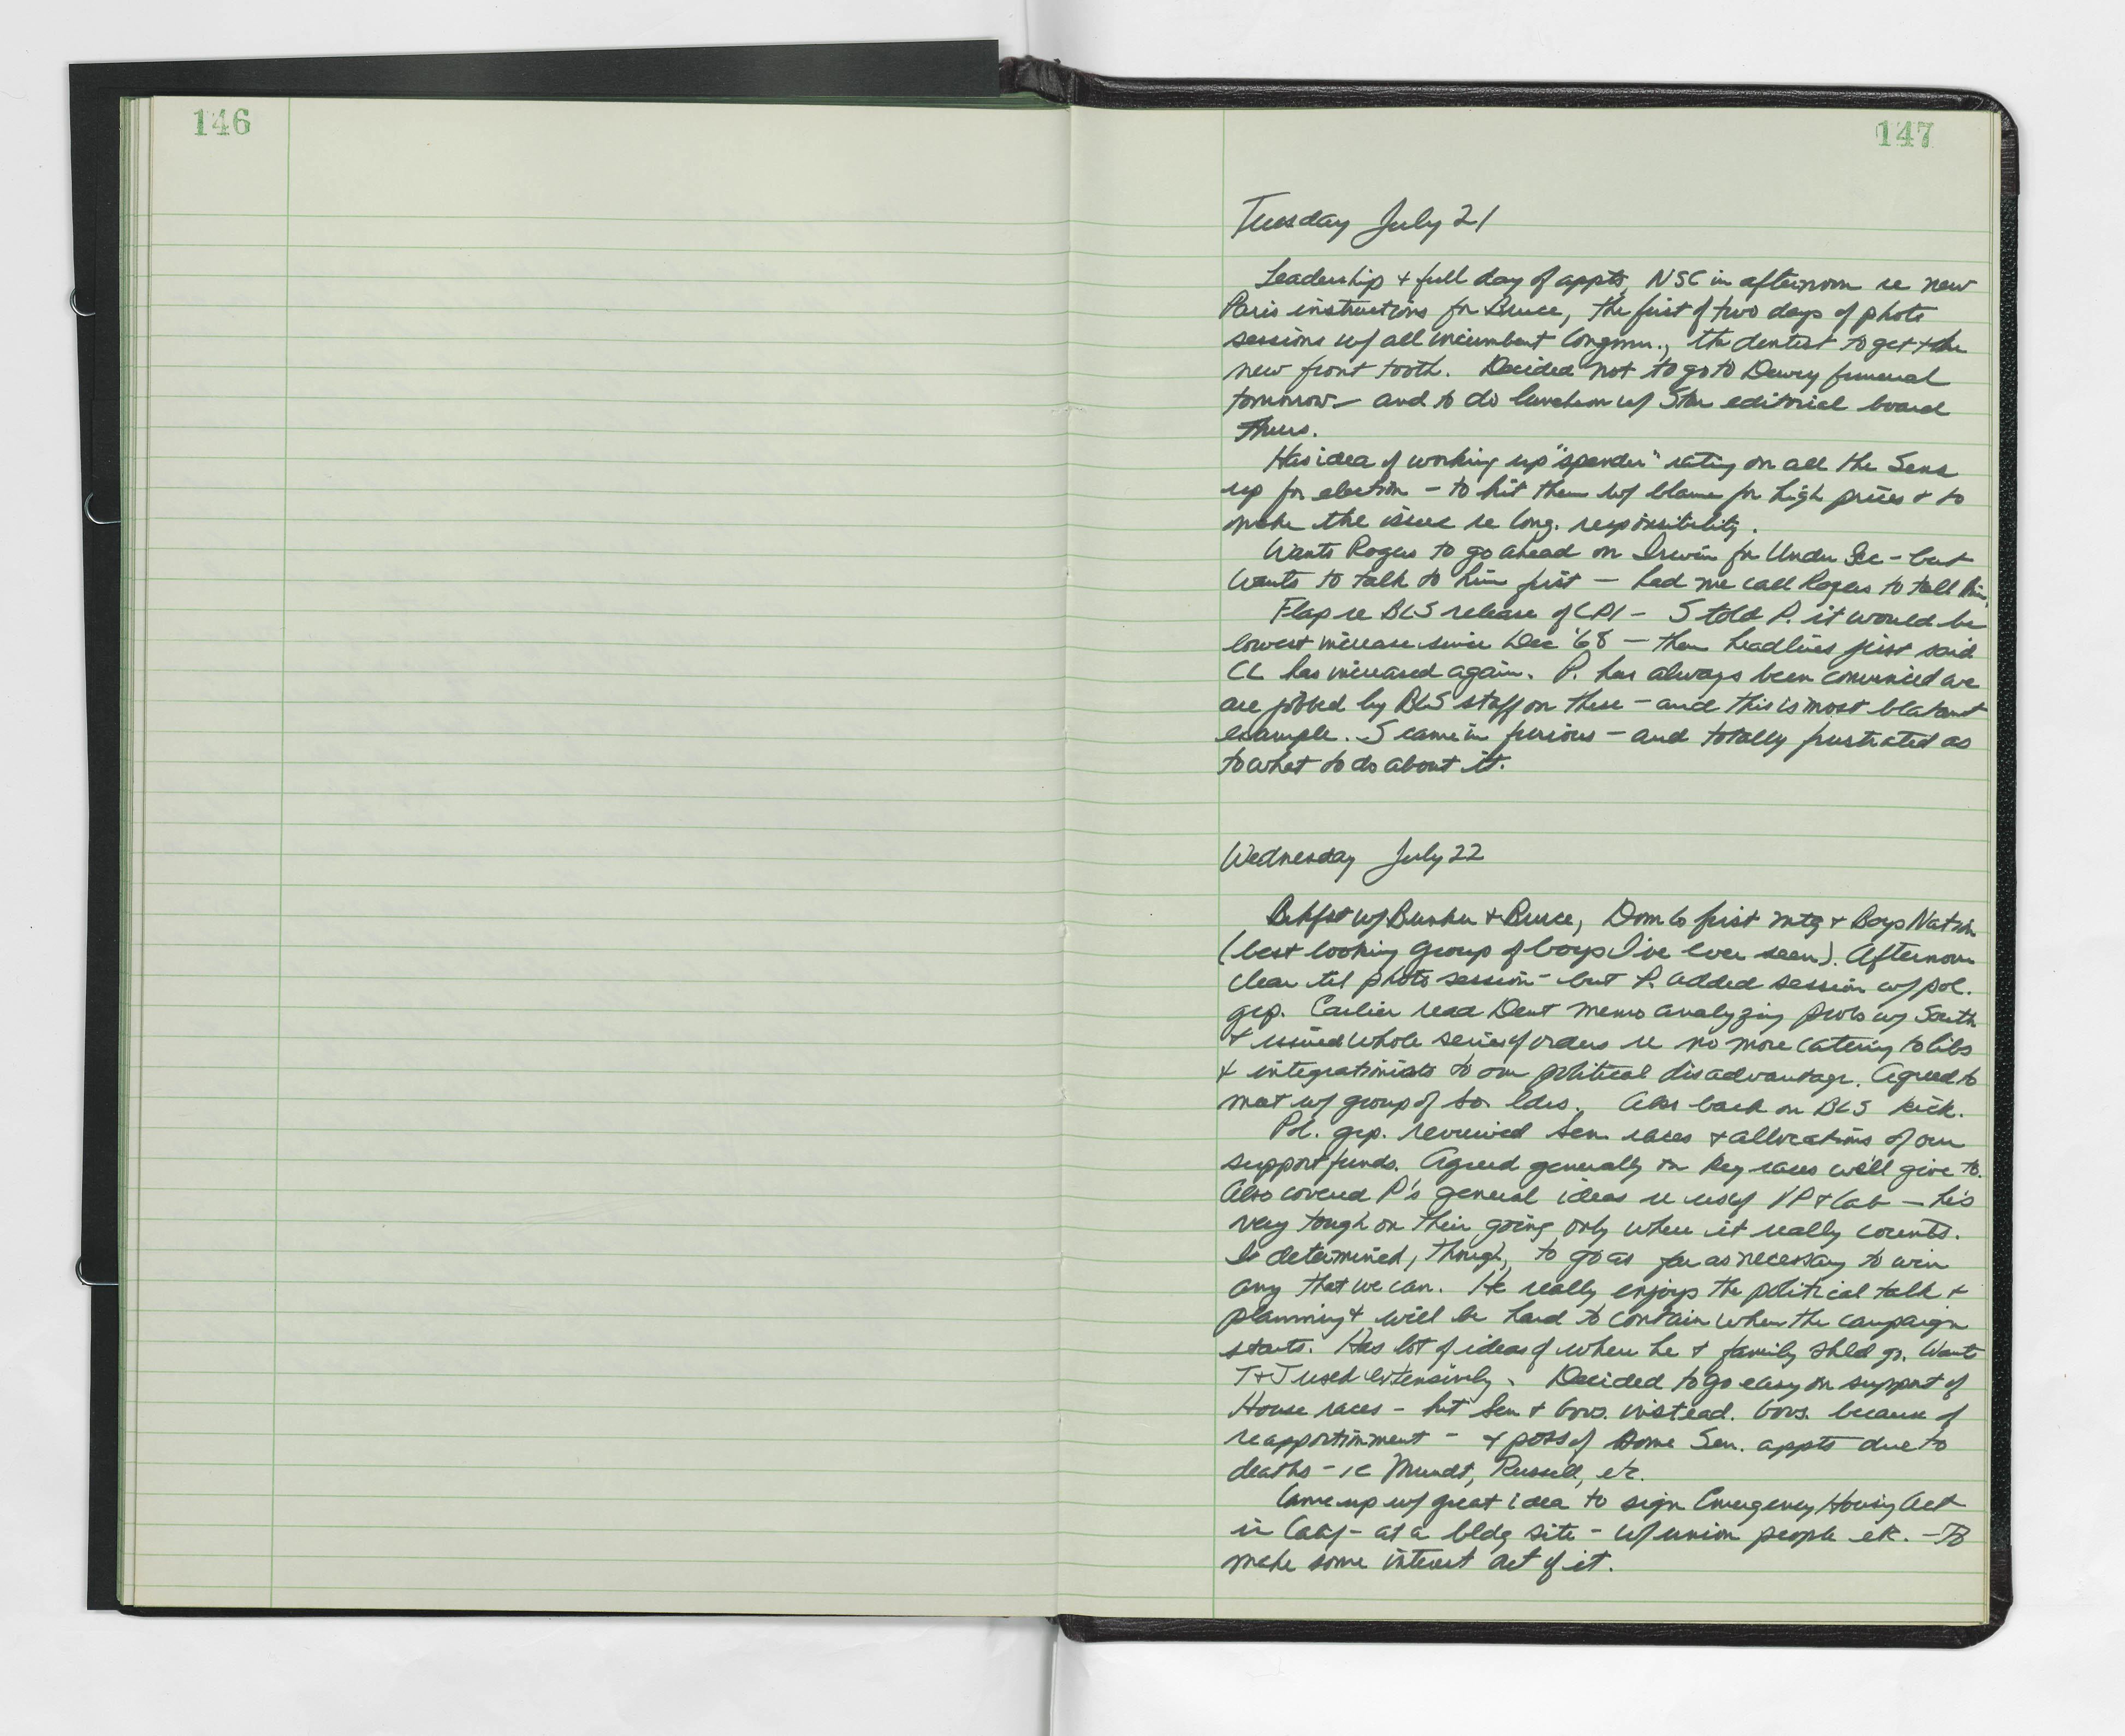 146
147
Tuesday July 21
Leadership + full day of appts, NSC in afternoon re new
Paris instructions for Bruce, the first of two days of photo
sessions w/ all incumbent Congmn., the dentist to get the
new front tooth. Decided not to go to Dewey funeral
tomorrow — and to do luncheon w/ Star editorial board
Thurs.
Has idea of working up "spender" rating on all the Sens
up for election - to hit them w/ blame for high prices & to
make the issue re Cong. responsibility.
Wants Rogers to go ahead on Irwin for Under Sec - but
wants to talk to him first — had me call Rogers to tell him.
Flap re BLS release of CPI - S told P. it would be
lowest increase since Dec '68 — then headlines just said
CL has increased again. P. has always been convinced we
are jobbed by BLS staff on these - and this is most blatant
example. S came in furious - and totally frustrated as
to what to do about it.
Wednesday July 22
Bkfst w/ Bunker + Bruce, Dom Co first mtg + Boys Nation
(best looking group of boys I've ever seen). Afternoon
clear til photo session - but P. added session w/ pol.
grp. Earlier read Dent memo analyzing probs w/ South
+ issued whole series of orders re no more catering to libs
+ integrationists to our political disadvantage. Agreed to
meet w/ group of So. ldrs. Also back on BLS kick.
Pol. grp. reviewed Sen. races + allocations of our
support funds. Agreed generally on key races we'll give to.
Also covered P's general ideas re use of VP + Cab — he's
very tough on their going only where it really counts.
Is determined, though, to go as far as necessary to win
any that we can. He really enjoys the political talk +
planning + will be hard to contain when the campaign
starts. Has lot of ideas of where he + family shld go. Wants
T+J used extensively. Decided to go easy on support of
House races - hit Sen + Govs. instead. Govs. because of
reapportionment - + poss of some Sen. appts due to
deaths - ie Mundt, Russell, etc.
Came up w/ great idea to sign Emergency Housing Act
in Calif - at a bldg site - w/ union people etc. - To
make some interest out of it.